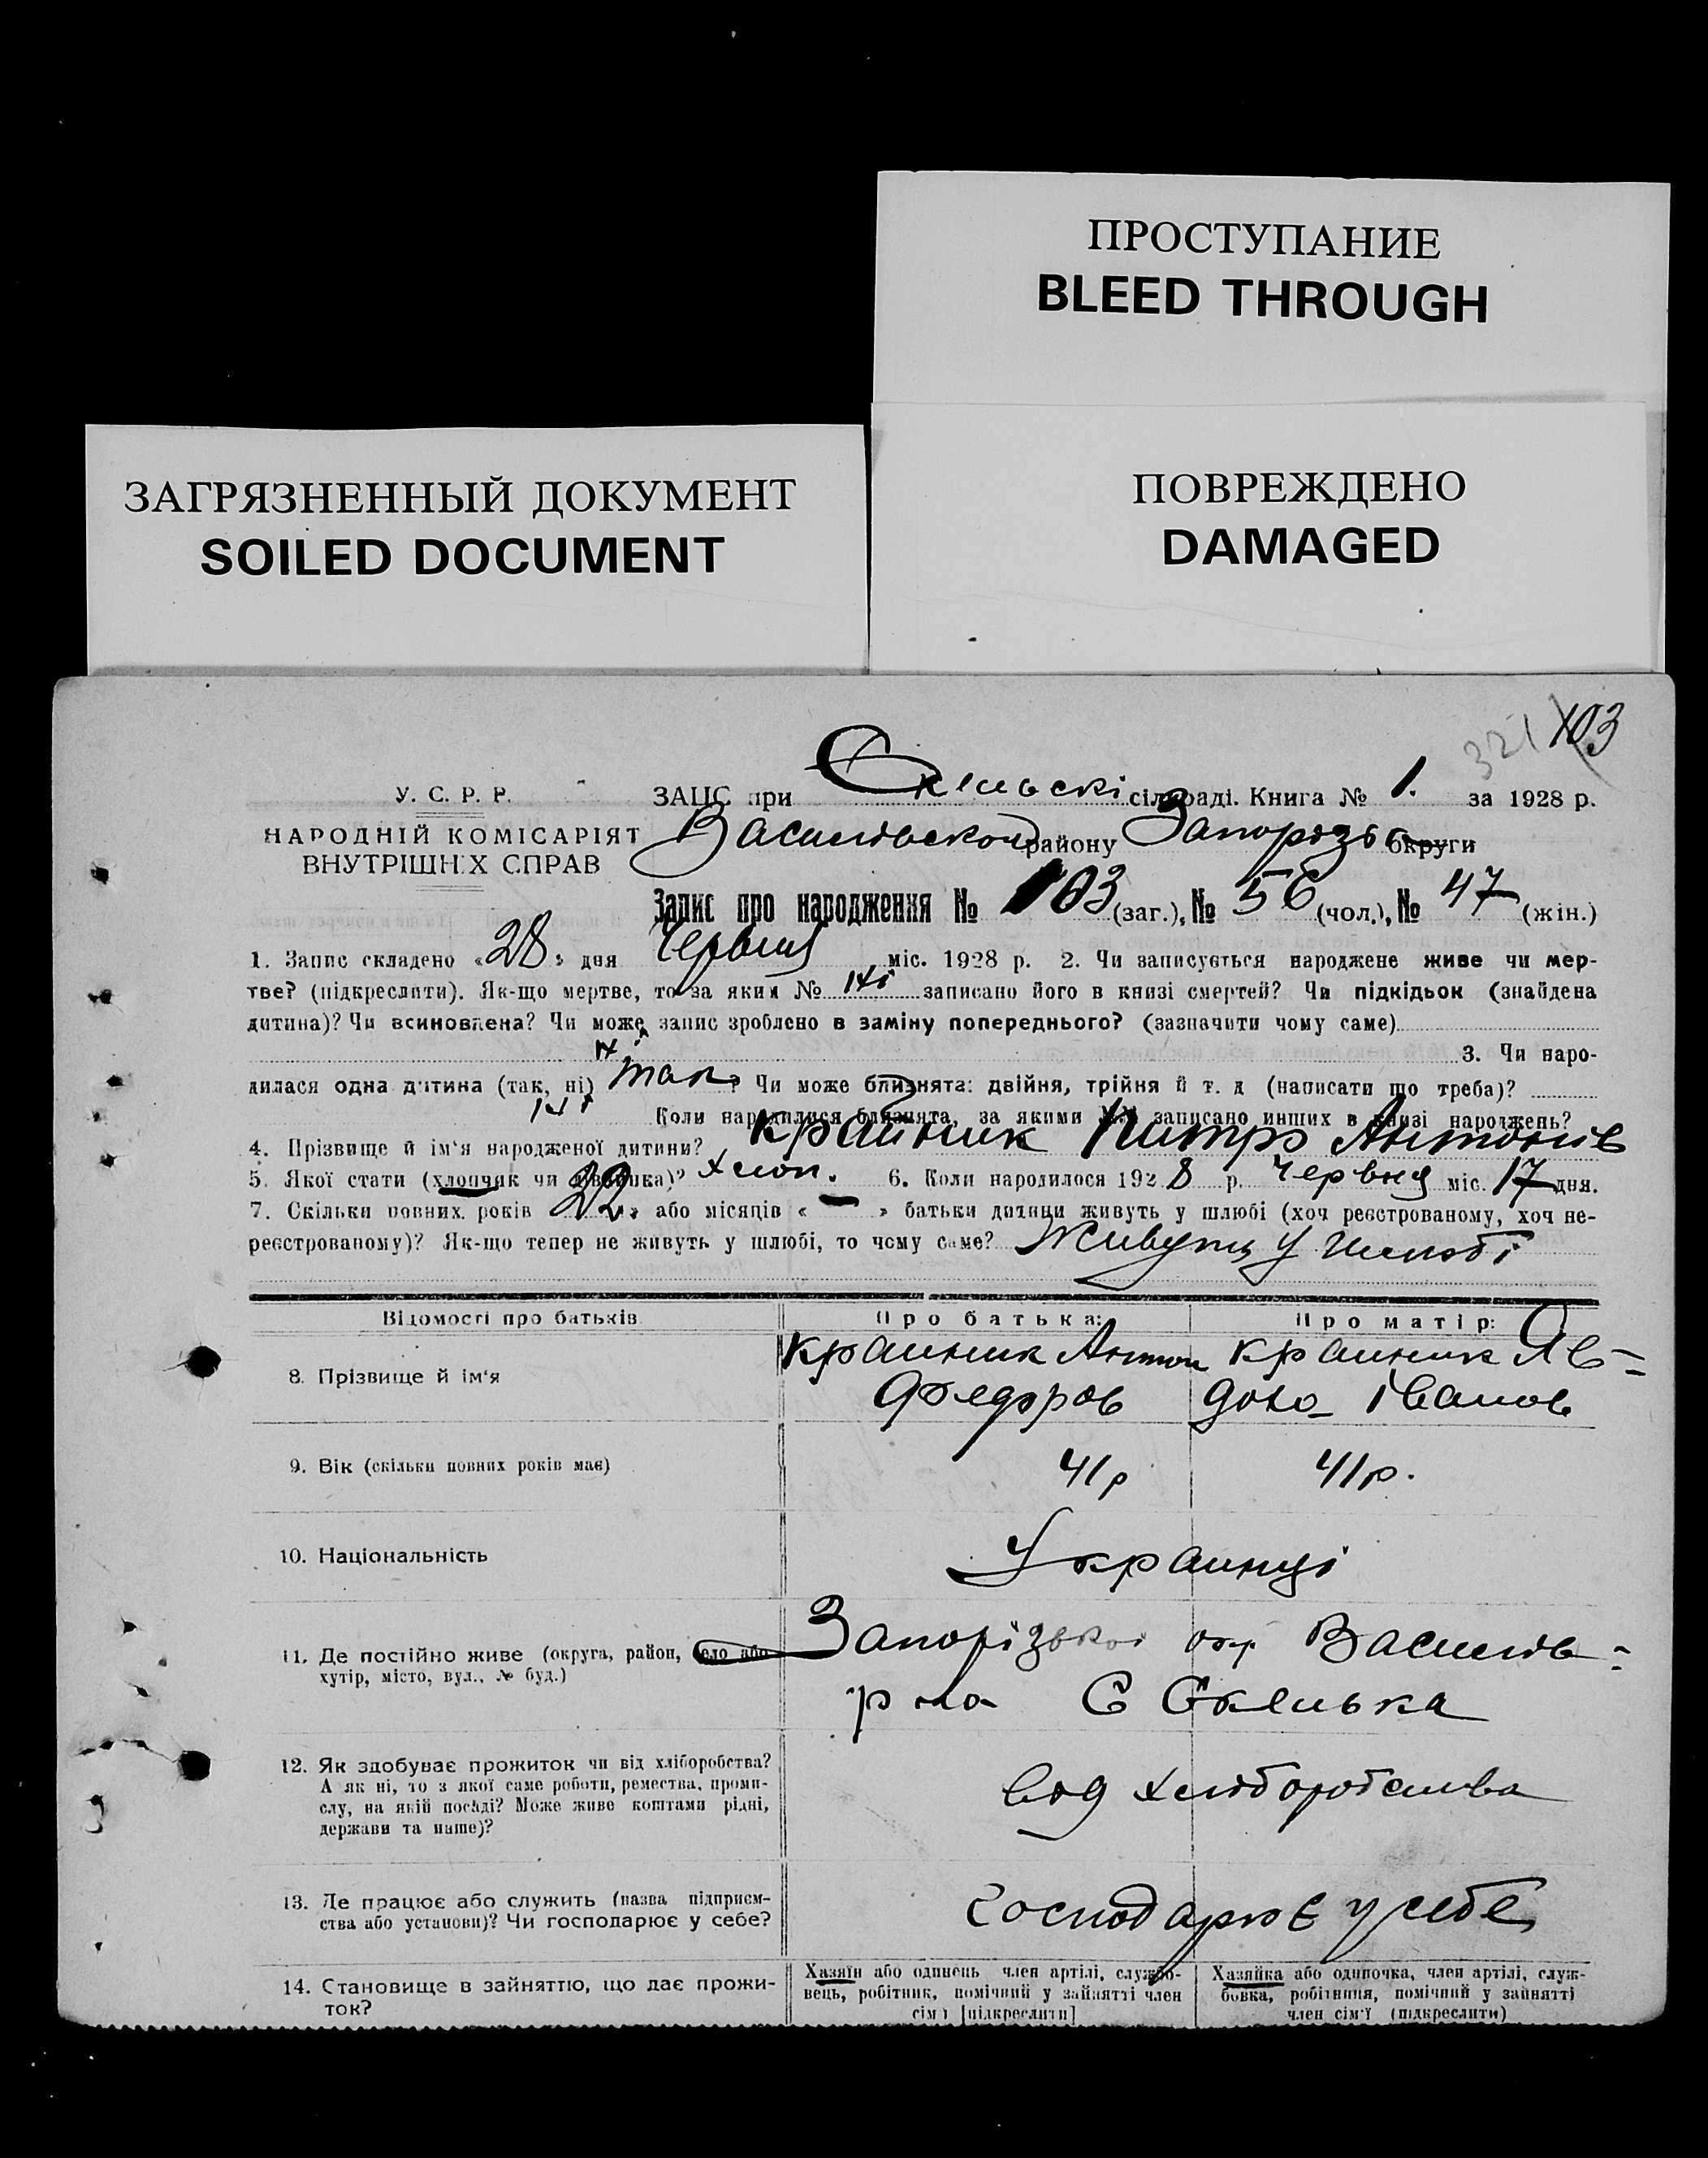 ПРОСТУПАНИЕ
BLEED THROUGH
ЗАГРЯЗНЕННЫЙ ДОКУМЕНТ
SOILED DOCUMENT
ПОВРЕЖДЕНО
DAMAGED
321 103
У. С. Р. Р.
НАРОДНІЙ КОМІСАРІЯТ
ВНУТРІШНІХ СПРАВ
ЗАЦС при Скельскі сільраді. Книга № 1. за 1928 р.
Василівської району Запоріз округи
Запис про народження № 103 (заг.), № 56 (чол.), № 47 (жін.)
1. Запис складено «28» дня Червня міс. 1928 р. 2. Чи записується народжене живе чи мер-
тве? (підкреслити). Як-що мертве, то за яким № ні записано його в книзі смертей? Чи підкідьок (знайдена
дитина)? Чи всиновлена? Чи може запис зроблено в заміну попереднього? (зазначити чому саме)
ні 3. Чи наро-
дилася одна дитина (так, ні) так? Чи може близнята: двійня, трійня й т. д (написати що треба)?
ні Коли народилися близнята, за якими №№ записано инших в книзі народжень?
4. Прізвище й ім'я народженої дитини? Крайник Питро Антонів
5. Якої стати (хлопчик чи дівчинка)? Хлоп. 6. Коли народилося 1928 р. Червня міс. 17 дня.
7. Скільки повних років « 22 » або місяців « — » батьки дитини живуть у шлюбі (хоч реєстрованому, хоч не-
реєстрованому)? Як-що тепер не живуть у шлюбі, то чому саме? Живуть у шлюбі
Відомості про батьків Про батька: Про матір:
8. Прізвище й ім'я Краиник Антон Федоров Краиник Яв=
дока Іванов
9. Вік (скільки повних років має) 41р 41р.
10. Національність Украинці
11. Де постійно живе (округа, район, село або
хутір, місто, вул., № буд.)
Запорізької окр Василів=
р на С Скелька
12. Як здобуває прожиток чи від хліборобства?
А як ні, то з якої саме роботи, ремества, проми-
слу, на якій посаді? Може живе коштами рідні,
держави та инше)?
від хліборобства
13. Де працює або служить (назва підприєм-
ства або установи)? Чи господарює у себе?
Господарює у себе
14. Становище в зайняттю, що дає прожи-
ток?
Хазяїн або одинець член артілі, службо-
вець, робітник, помічний у зайнятті член
сім'ї [підкреслити]
Хазяйка або одиночка, член артілі, служ-
бовка, робітниця, помічний у зайнятті
член сім'ї (підкреслити)